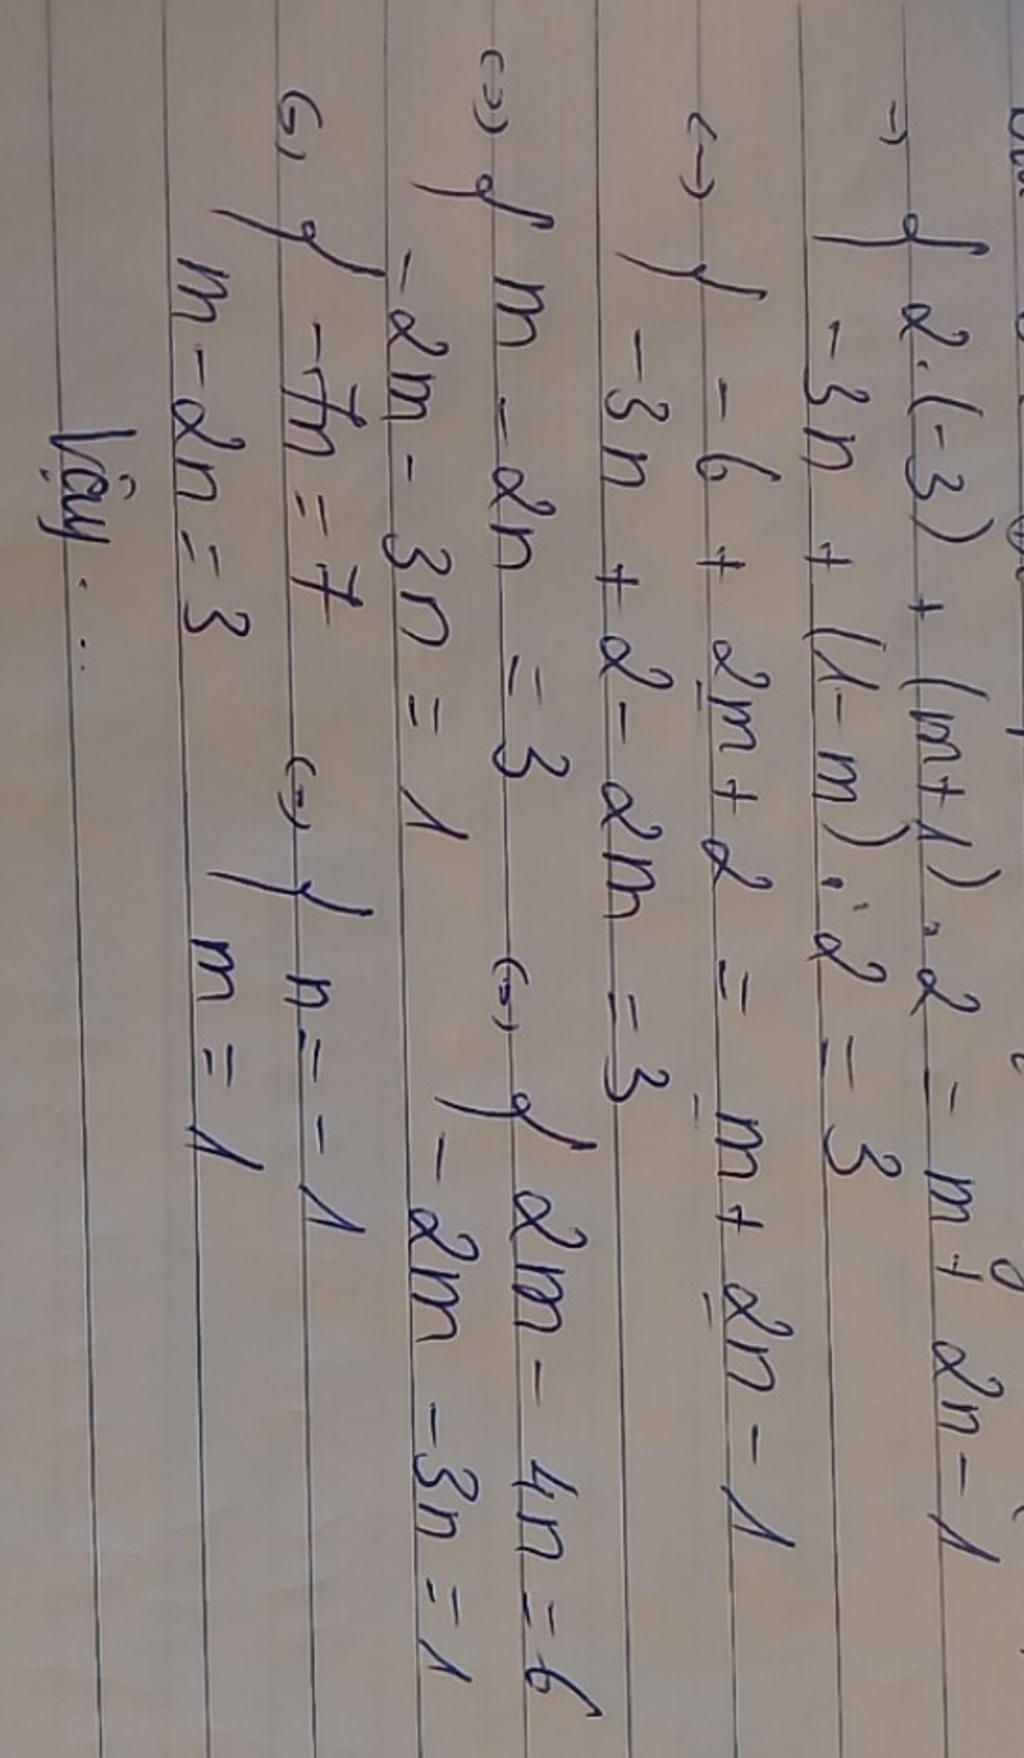 → { 2.(-3) + (m+1).2 = m + 2n - 1
-3n + (1-m).2 = 3
<-> { -6 + 2m + 2 = m + 2n - 1
-3n + 2 - 2m = 3
<=> { m - 2n = 3 <=> { 2m - 4n = 6
-2m - 3n = 1 -2m - 3n = 1
<=> { -7n = 7 <=> { n = -1
m - 2n = 3 m = 1
Vậy ...